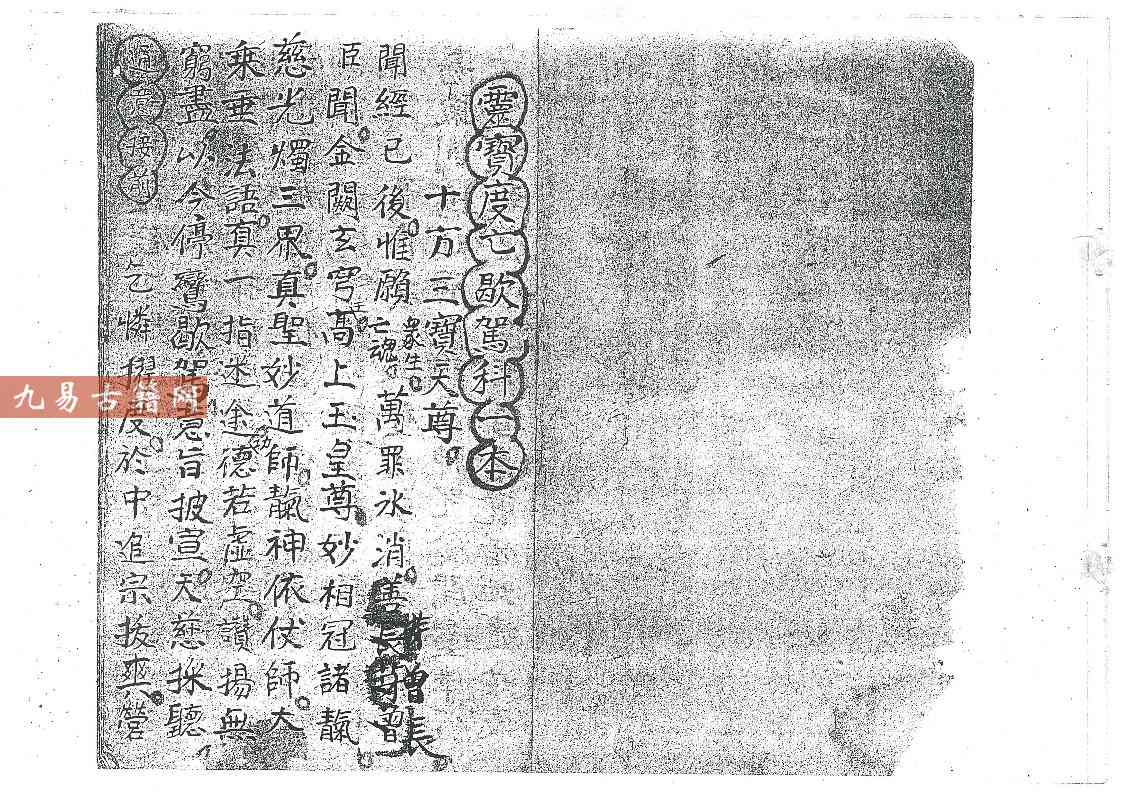 靈寶度亡歇駕科一本
十方三寶天尊
聞經已後惟願亡魂眾生萬罪氷消善增長
臣聞金闕玄穹高上玉皇尊妙相冠諸
慈光燭三界真聖妙道師神依仗師大
乘垂法語真一指迷途德若虛空讚揚無
窮盡以今停鸞歇駕意旨披宣天慈採聽
通意接前 乞憐擢度於中追宗拔爽營
九易古籍网